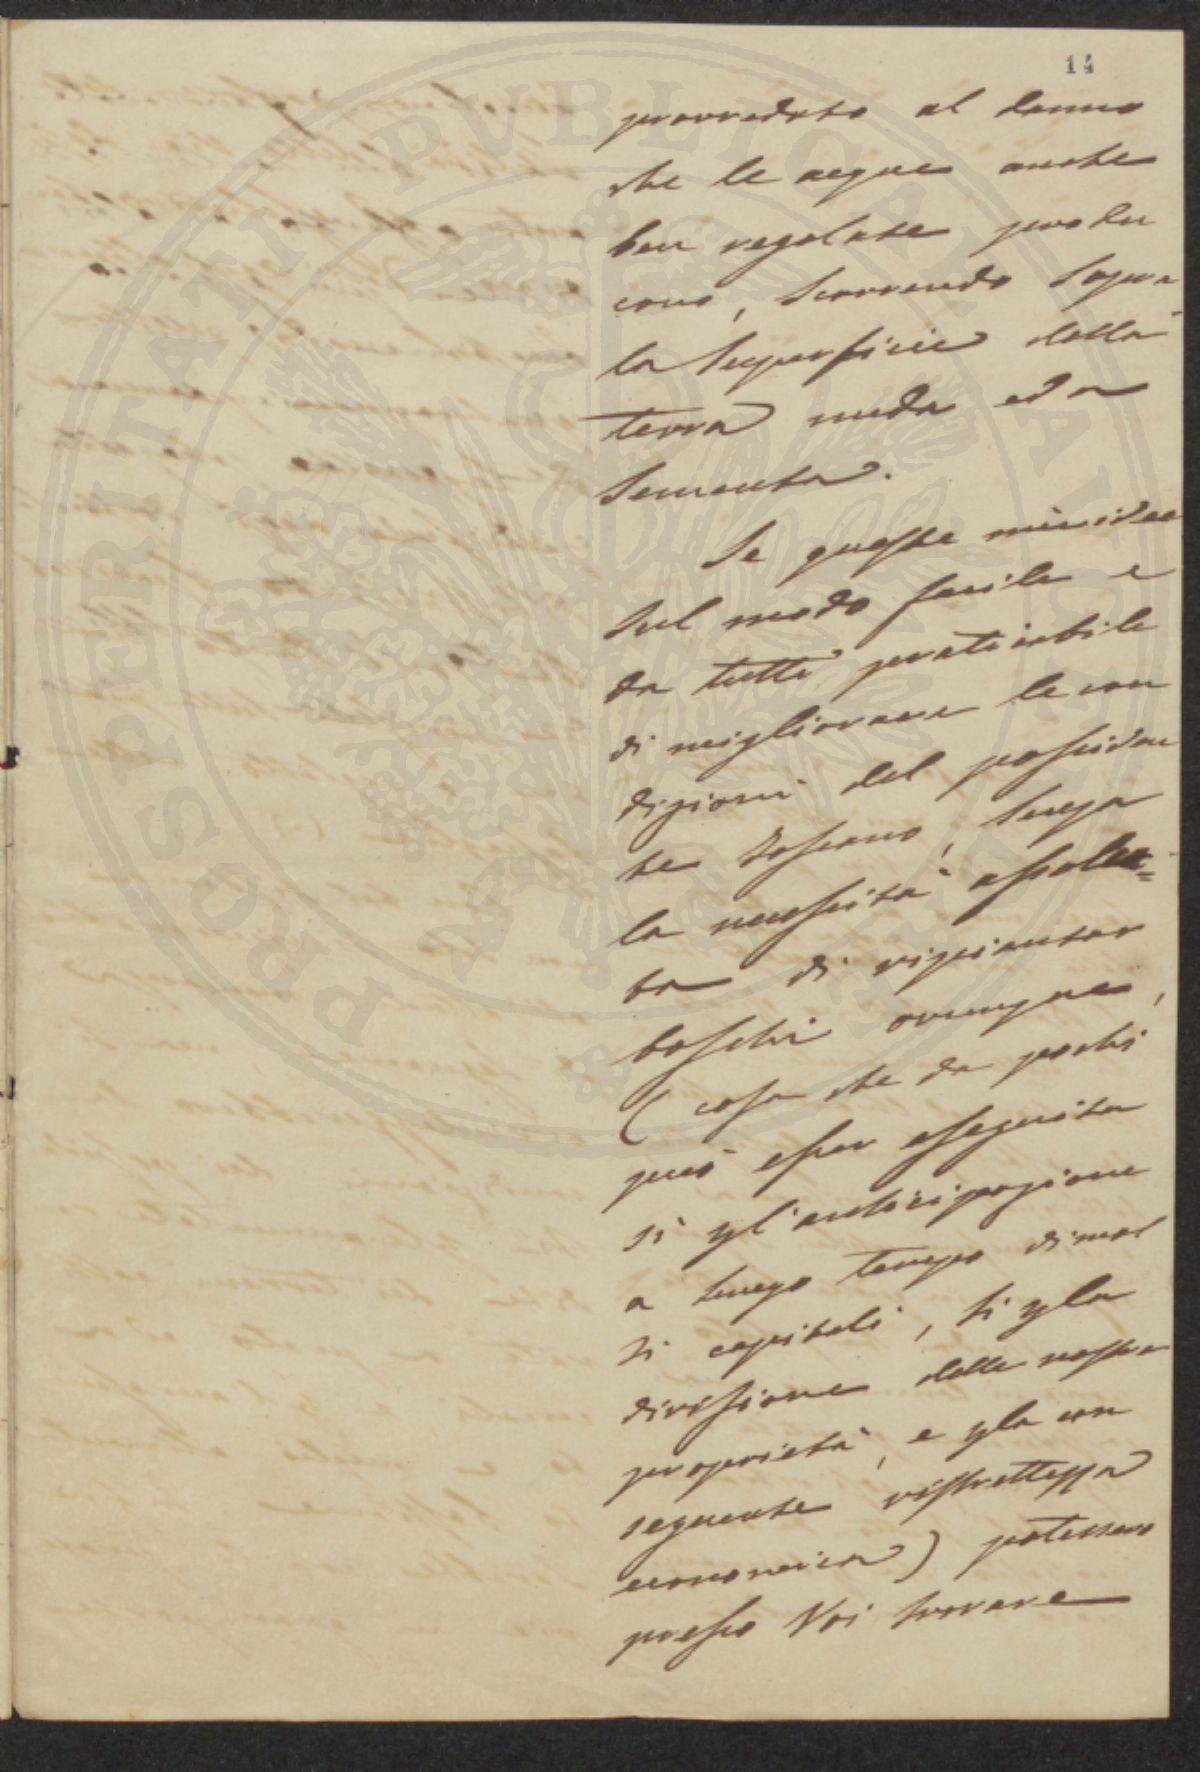 14
provveduto al danno
che le acque anche
ben regolate produ
cono, scorrendo sopra
la superficie della
terra nuda ed a
sementa.
Se queste mie idee
sul modo facile e
da tutti praticabile
di migliorare le con
dizioni del possiden
te Toscano, senza
la necessità assolu=
ta di ripiantar
boschi ovunque,
( cosa che da pochi
può esser eseguita
sì pl'anticipazione
a lungo tempo di mol
ti capitali, sì pla
divisione delle nostre
proprietà, e pla con
seguente ristrettezza
economica) potessero
presso Voi trovare
PROSPERITATI PUBLICAE AUGENDAE